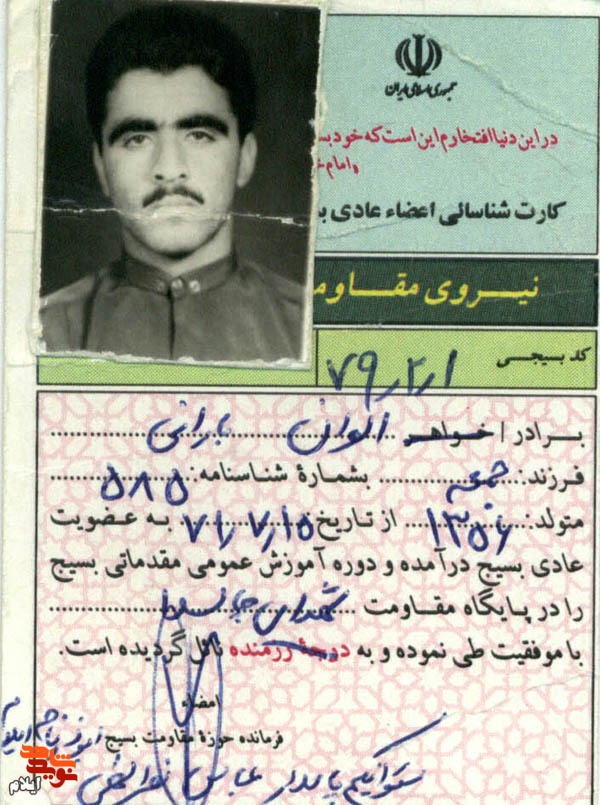 جمهوری اسلامی ایران
در این دنیا افتخارم این است که خود بس
امام خ
کارت شناسائی اعضاء عادی ب
نیروی مقاوم
کد بسیجی
۷۹٫۲٫۱
برادر/خواهر الوان بارانی
فرزند: جمعه بشمارهٔ شناسنامه: ۵۸۵
متولد: ۱۳۵۶ از تاریخ: ۷۱٫۷٫۱۵ به عضویت
عادی بسیج درآمده و دوره آموزش عمومی مقدماتی بسیج
را در پایگاه مقاومت شهدای
با موفقیت طی نموده و به درجهٔ رزمنده نائل گردیده است.
امضاء
فرمانده حوزهٔ مقاومت بسیج
ستوانیکم پاسدار عباس
نوید شاهد
ایلام